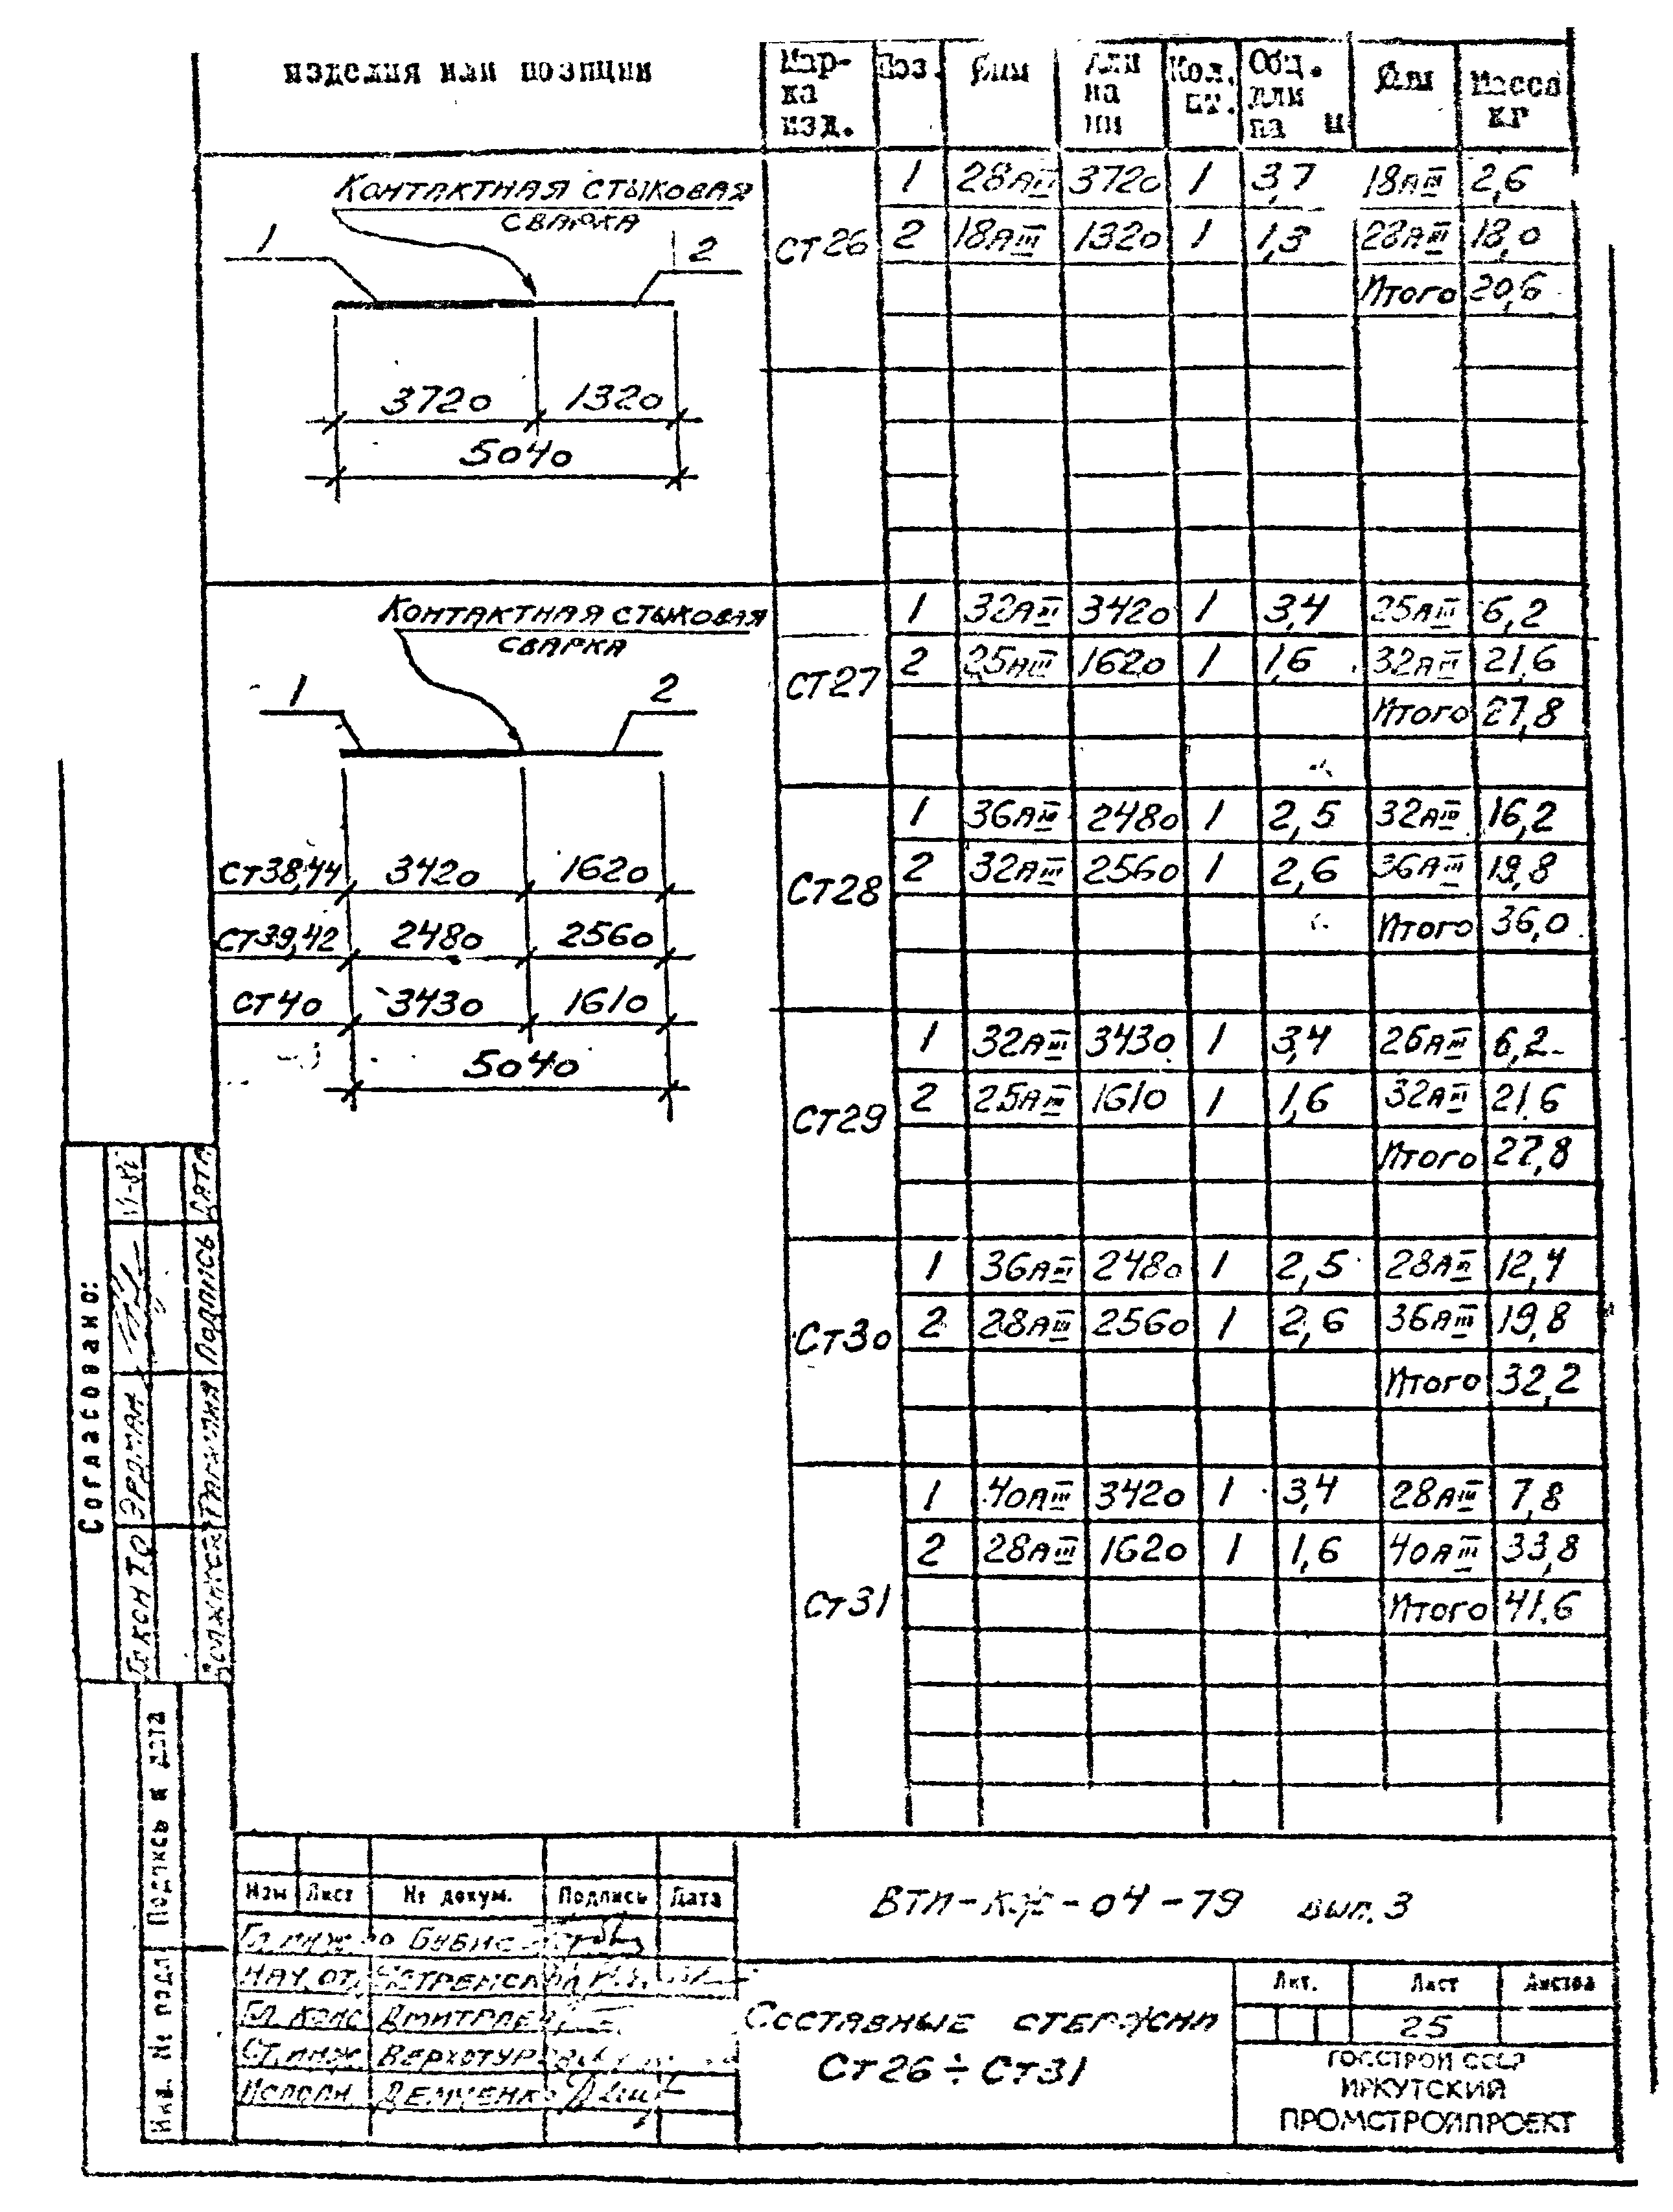 изделия или позиции
Мар-ка изд. Поз. Øмм Дли на мм Кол. шт. Общ. дли на м Øмм Масса кг
Контактная стыковая
сварка
1 2
3720 1320
5040
Ст26
1 28АIII 3720 1 3,7 18АIII 2,6
2 18АIII 1320 1 1,3 28АIII 18,0
Итого 20,6
Контактная стыковая
сварка
1 2
Ст38,44 3420 1620
Ст39,42 2480 2560
Ст40 3430 1610
5040
Ст27
1 32АIII 3420 1 3,4 25АIII 6,2
2 25АIII 1620 1 1,6 32АIII 21,6
Итого 27,8
Ст28
1 36АIII 2480 1 2,5 32АIII 16,2
2 32АIII 2560 1 2,6 36АIII 19,8
Итого 36,0
Ст29
1 32АIII 3430 1 3,4 25АIII 6,2
2 25АIII 1610 1 1,6 32АIII 21,6
Итого 27,8
Ст30
1 36АIII 2480 1 2,5 28АIII 12,4
2 28АIII 2560 1 2,6 36АIII 19,8
Итого 32,2
Ст31
1 40АIII 3420 1 3,4 28АIII 7,8
2 28АIII 1620 1 1,6 40АIII 33,8
Итого 41,6
Согласовано:
Гл кон ТО Эрдман
Должность Фамилия Подпись Дата
Подпись и дата
Инв. № подл
Изм Лист № докум. Подпись Дата
Гл инж
Нач. от.
Гл. конс
Ст. инж.
Исполн. Демченко
ВТП-КЖ-04-79 вып. 3
Составные стержни
Ст26÷Ст31
Лит. Лист Листов
25
ГОССТРОЙ СССР
ИРКУТСКИЙ
ПРОМСТРОЙПРОЕКТ